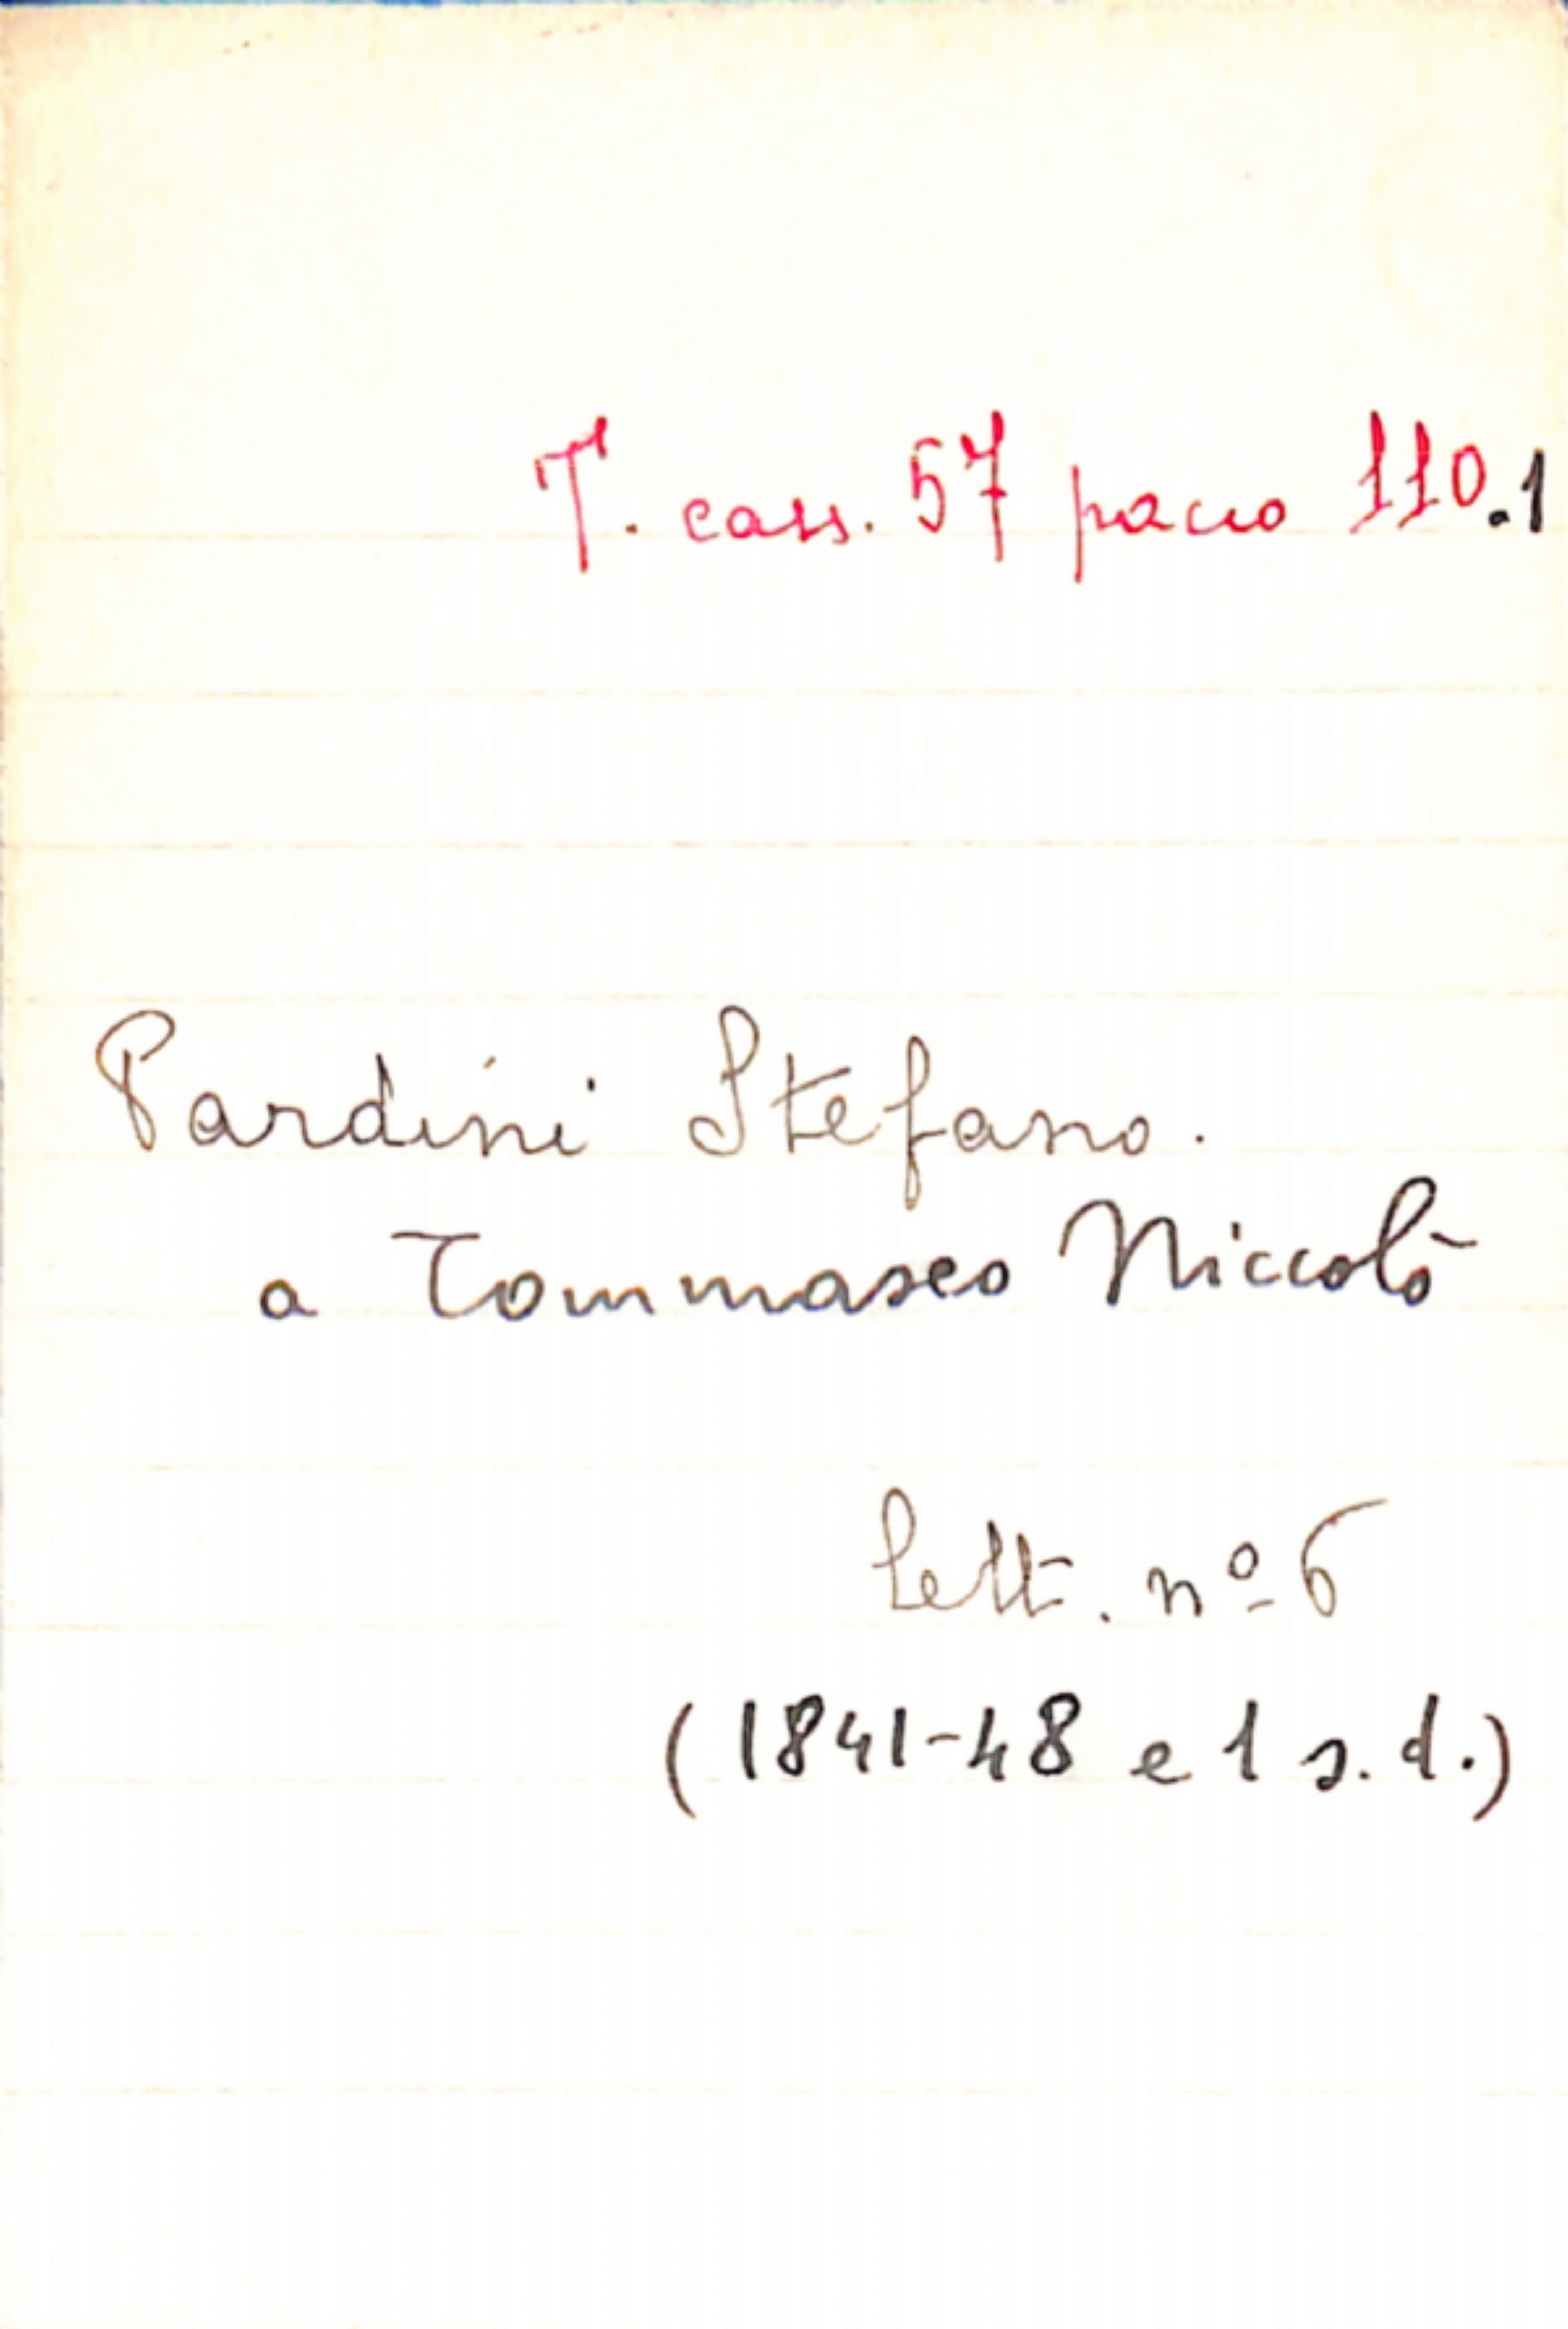 T. cass. 57 pacco 110.1
Pardini Stefano.
a Tommaseo Niccolò
Lett. nº 6
(1841-48 e 1 s.d.)